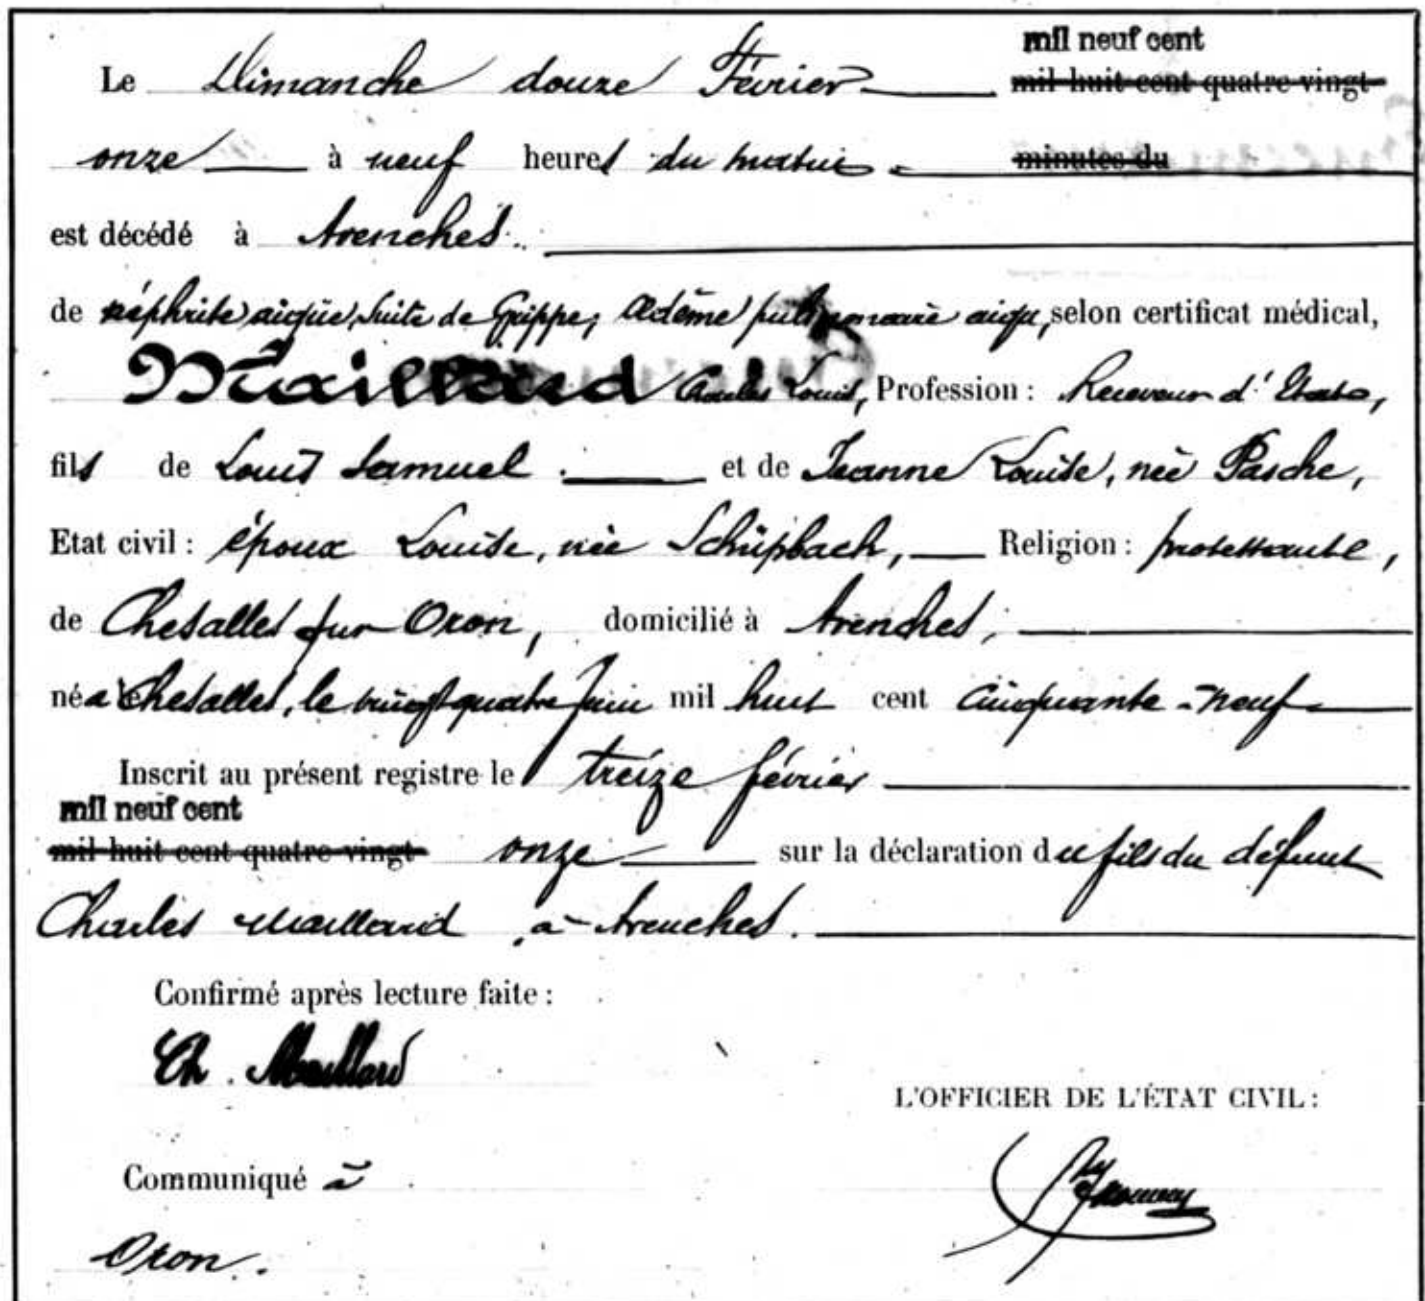 mil neuf cent
Le Dimanche douze Février mil huit cent quatre vingt
onze à neuf heures du matin. minutes du
est décédé à Avenches.
de néphrite aigüe, suite de Grippe; Œdème pulmonaire aigu, selon certificat médical,
Maillard Charles Louis, Profession : Receveur d'Etat,
fils de Louis Samuel. et de Jeanne Louise, née Pasche,
Etat civil : époux Louise, née Schüpbach, Religion : protestante,
de Chesalles sur Oron, domicilié à Avenches,
né à Chesalles, le vingt quatre juin mil huit cent cinquante-neuf
Inscrit au présent registre le treize février
mil neuf cent
mil huit cent quatre vingt onze sur la déclaration du fils du défunt
Charles Maillard, à Avenches.
Confirmé après lecture faite :
Ch. Maillard
L'OFFICIER DE L'ÉTAT CIVIL :
Communiqué à
Oron.